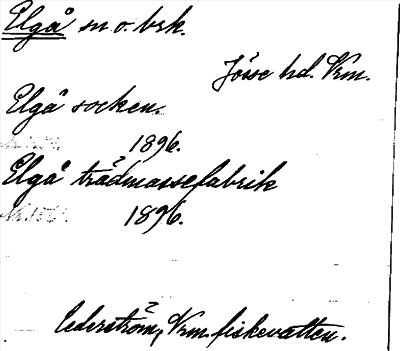 Elgå sn o. brk.
Jösse hd. Vrm.
Elgå socken.
1896.
Elgå trådmassefabrik
1896.
Cederström, Vrm. fiskevatten.